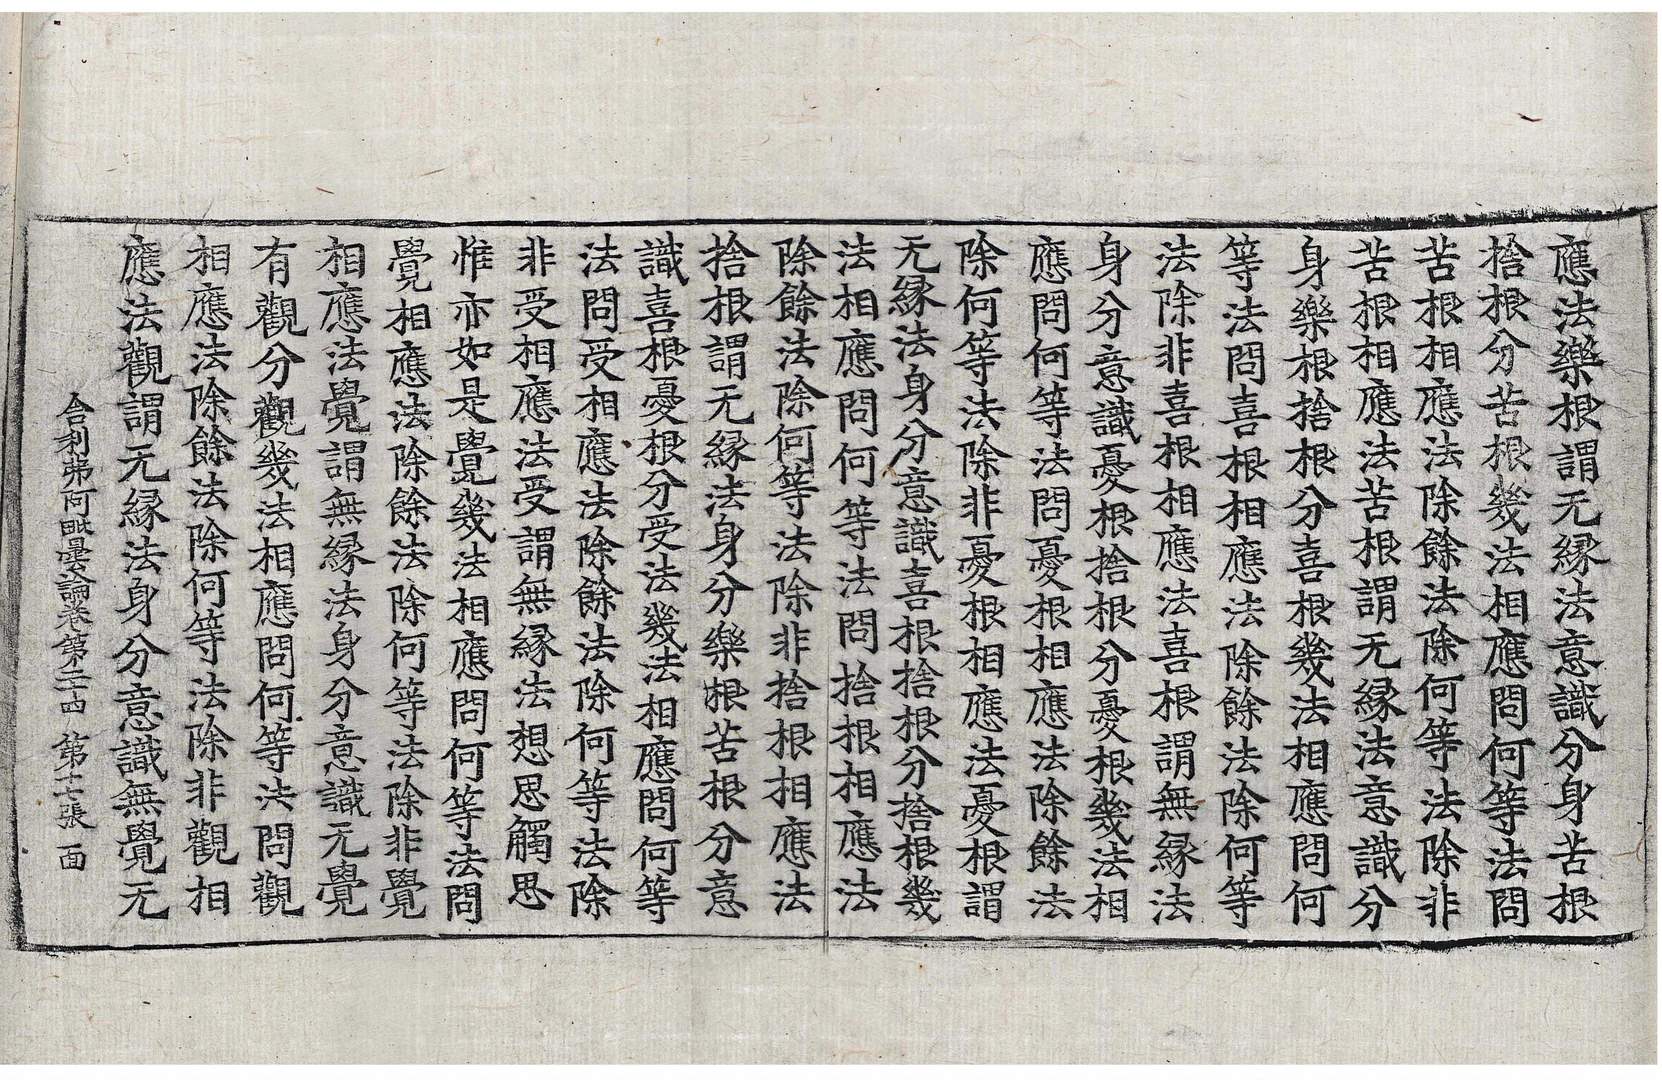 應法樂根謂无緣法意識分身苦根
捨根分苦根幾法相應問何等法問
苦根相應法除餘法除何等法除非
苦根相應法苦根謂无緣法意識分
身樂根捨根分喜根幾法相應問何
等法問喜根相應法除餘法除何等
法除非喜根相應法喜根謂無緣法
身分意識憂根捨根分憂根幾法相
應問何等法問憂根相應法除餘法
除何等法除非憂根相應法憂根謂
无緣法身分意識喜根捨根分捨根幾
法相應問何等法問捨根相應法
除餘法除何等法除非捨根相應法
捨根謂无緣法身分樂根苦根分意
識喜根憂根分受法幾法相應問何等
法問受相應法除餘法除何等法除
非受相應法受謂無緣法想思觸思
惟亦如是覺幾法相應問何等法問
覺相應法除餘法除何等法除非覺
相應法覺謂無緣法身分意識无覺
有觀分觀幾法相應問何等法問觀
相應法除餘法除何等法除非觀相
應法觀謂无緣法身分意識無覺无
舍利弗阿毗曇論卷第二十四 第十七張 面